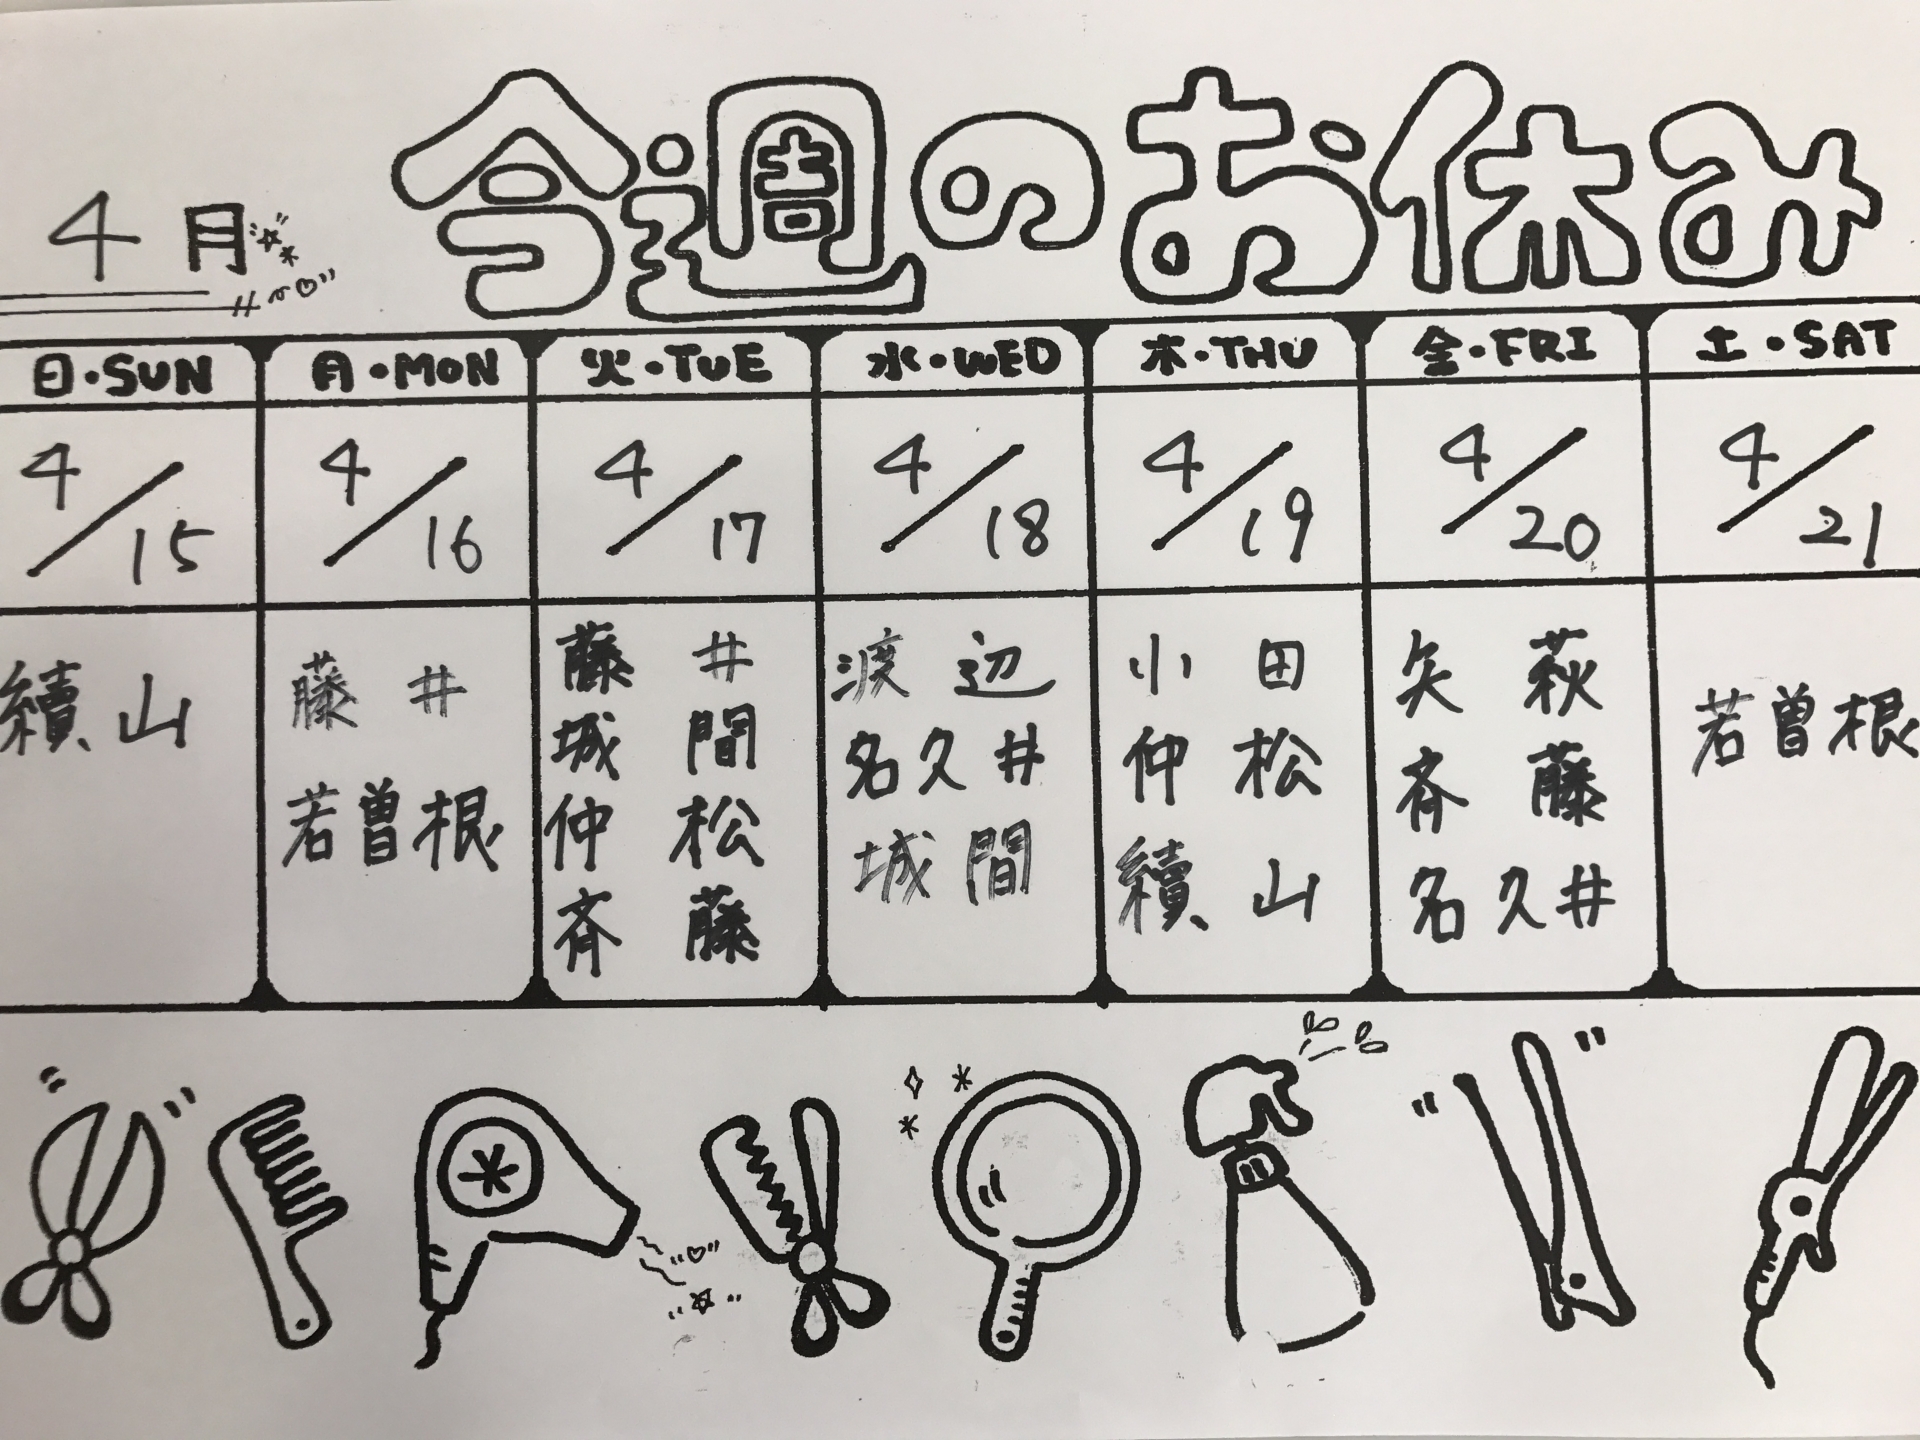 4月
今週のお休み
日・SUN 月・MON 火・TUE 水・WED 木・THU 金・FRI 土・SAT
4/15 4/16 4/17 4/18 4/19 4/20 4/21
續山
藤井
若曽根
藤井
城間
仲松
斉藤
渡辺
名久井
城間
小田
仲松
續山
矢萩
斉藤
名久井
若曽根